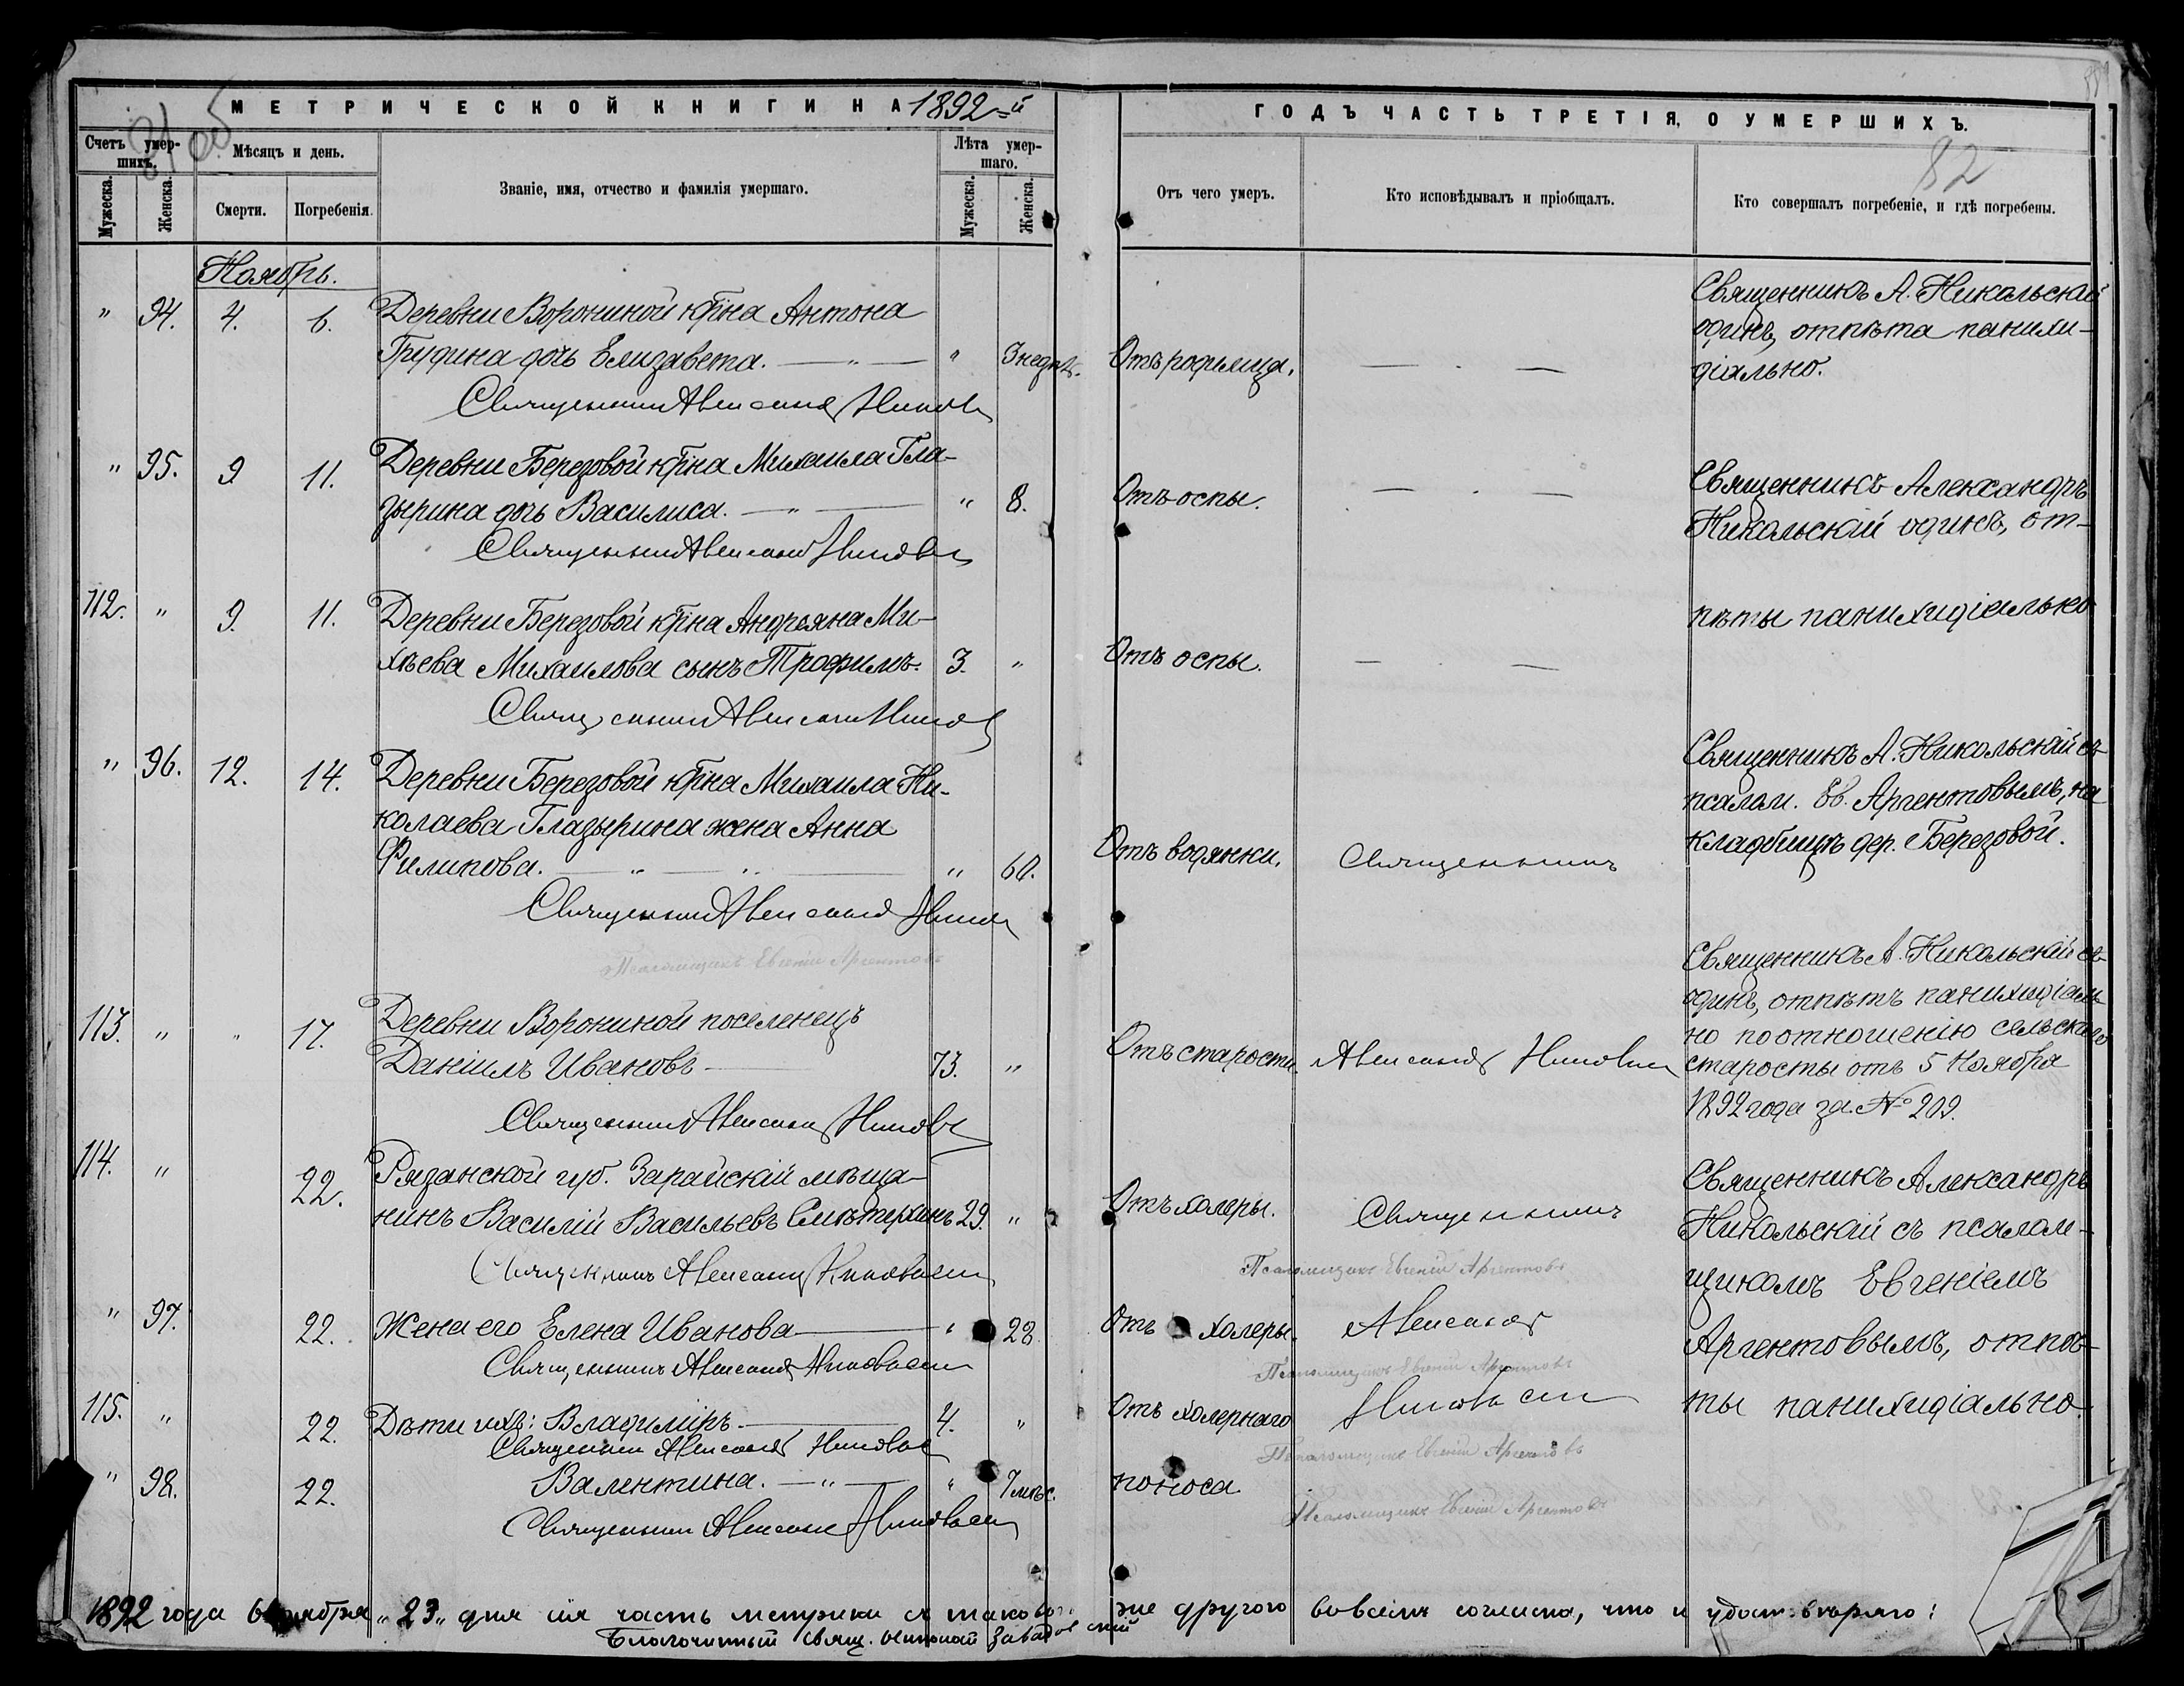 МЕТРИЧЕСКОЙ КНИГИ НА 1892=й
ГОДЪ ЧАСТЬ ТРЕТІЯ, О УМЕРШИХЪ.
81 об
82
Счетъ умер-
шихъ.
Мѣсяцъ и день.
Званіе, имя, отчество и фамилія умершаго.
Лѣта умер-
шаго.
Отъ чего умеръ.
Кто исповѣдывалъ и пріобщалъ.
Кто совершалъ погребеніе, и гдѣ погребены.
Мужеска.
Женска.
Смерти.
Погребенія.
Мужеска.
Женска.
Ноябрь.
" 94. 4. 6. Деревни Ворониной кр̃на Антона
Грудина дочь Елизавета. — " — " 3 недѣл. Отъ родимца. — . —
Священникъ А. Никольскій
одинъ, отпѣта панихи-
діально.
Священникъ Александръ Никольскій
" 95. 9 11. Деревни Березовой кр̃на Михаила Гла-
зырина дочь Василиса. — " — " 8. Отъ оспы. — . —
Священникъ Александръ
Никольскій одинъ, от-
Священникъ Александръ Никольскій
112. " 9. 11. Деревни Березовой кр̃на Андреяна Ми-
хѣева Михаилова сынъ Трофимъ. 3. " Отъ оспы. — . —
пѣты панихидіально
Священникъ Александръ Никольскій
" 96. 12. 14. Деревни Березовой кр̃на Михаила Ни-
колаева Глазырина жена Анна
Филипова. — " — " — " 60. Отъ водянки. Священникъ
Священникъ А. Никольскій съ
псалом. Ев. Аргентовымъ, на
кладбищѣ дер. Березовой.
Священникъ Александръ Никольскій
Псаломщикъ Евгеній Аргентовъ
113. " " 17. Деревни Ворониной поселенецъ
Даніилъ Ивановъ — 73. " Отъ старости Александръ Никольскій
Священникъ А. Никольскій
одинъ, отпѣтъ панихидіаль-
но по отношенію сельскаго
старосты отъ 5 Ноября
1892 года за № 209.
Священникъ Александръ Никольскій
114. " 22. Рязанской губ. Зарайскій мѣща-
нинъ Василій Васильевъ Смѣтерхинъ 29. " Отъ холеры. Священникъ
Священникъ Александръ
Никольскій съ псалом-
щикомъ Евгеніемъ
Аргентовымъ, отпѣ-
ты панихидіально.
Священникъ Александръ Никольскій
Псаломщикъ Евгеній Аргентовъ
" 97. 22. Жена его Елена Иванова — " 28. Отъ холеры. Александръ
Священникъ Александръ Никольскій
Псаломщикъ Евгеній Аргентовъ
115. " 22. Дѣти ихъ: Владиміръ. — 4. " Отъ холернаго Никольскій
Священникъ Александръ Никольскій
Псаломщикъ Евгеній Аргентовъ
" 98. 22. Валентина. — " — " 7 мѣс. поноса.
Священникъ Александръ Никольскій
Псаломщикъ Евгеній Аргентовъ
1892 года „23„ дня сія часть метрики съ таковою же другою во всемъ согласна, что и удостовѣряю:
Благочинный свящ. Николай Завадовскій